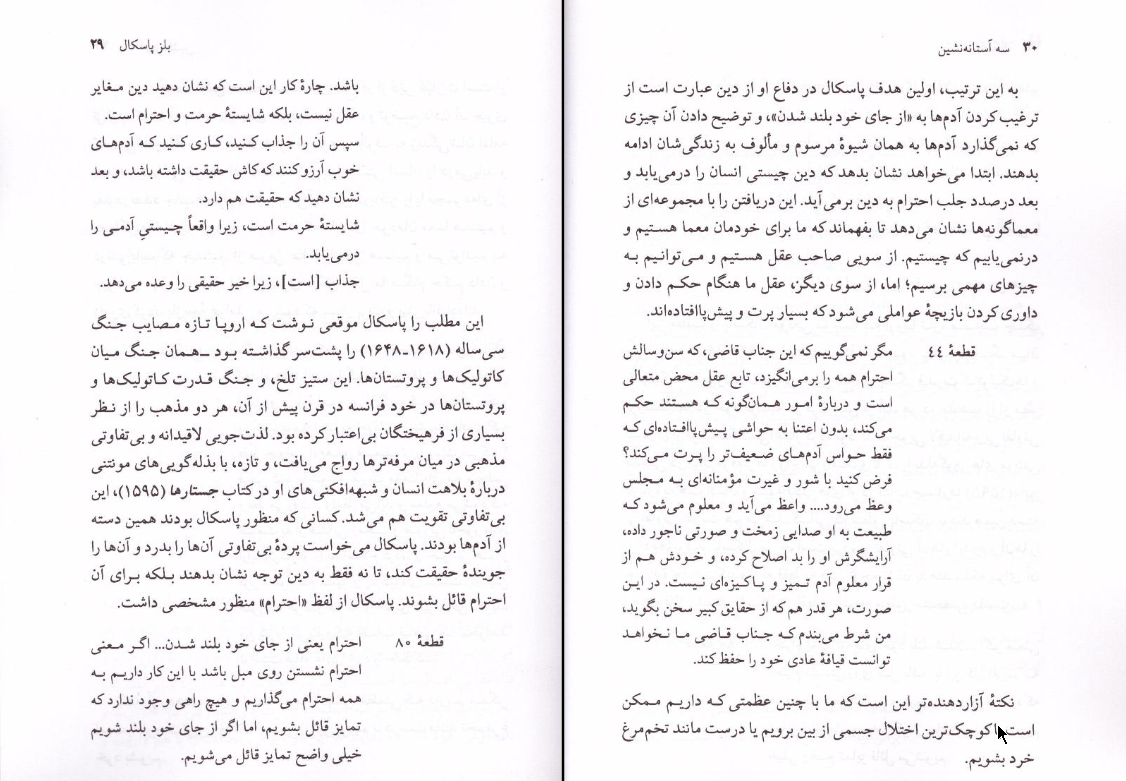 بلز پاسکال ۲۹
باشد. چارهٔ کار این است که نشان دهید دین مغایر
عقل نیست، بلکه شایستهٔ حرمت و احترام است.
سپس آن را جذاب کنید، کاری کنید که آدم‌های
خوب آرزو کنند که کاش حقیقت داشته باشد، و بعد
نشان دهید که حقیقت هم دارد.
شایستهٔ حرمت است، زیرا واقعاً چیستیِ آدمی را
درمی‌یابد.
جذاب [است]، زیرا خیر حقیقی را وعده می‌دهد.
این مطلب را پاسکال موقعی نوشت که اروپا تازه مصایب جنگ
سی‌ساله (۱۶۱۸ـ۱۶۴۸) را پشت‌سر گذاشته بود ــ همان جنگ میان
کاتولیک‌ها و پروتستان‌ها. این ستیز تلخ، و جنگ قدرت کاتولیک‌ها و
پروتستان‌ها در خود فرانسه در قرن پیش از آن، هر دو مذهب را از نظر
بسیاری از فرهیختگان بی‌اعتبار کرده بود. لذت‌جویی لاقیدانه و بی‌تفاوتی
مذهبی در میان مرفه‌ترها رواج می‌یافت، و تازه، با بذله‌گویی‌های مونتنی
دربارهٔ بلاهت انسان و شبهه‌افکنی‌های او در کتاب جستارها (۱۵۹۵)، این
بی‌تفاوتی تقویت هم می‌شد. کسانی که منظور پاسکال بودند همین دسته
از آدم‌ها بودند. پاسکال می‌خواست پردهٔ بی‌تفاوتی آن‌ها را بدرد و آن‌ها را
جویندهٔ حقیقت کند، تا نه فقط به دین توجه نشان بدهند بلکه برای آن
احترام قائل بشوند. پاسکال از لفظ «احترام» منظور مشخصی داشت.
قطعهٔ ۸۰ احترام یعنی از جای خود بلند شدن... اگر معنی
احترام نشستن روی مبل باشد با این کار داریم به
همه احترام می‌گذاریم و هیچ راهی وجود ندارد که
تمایز قائل بشویم، اما اگر از جای خود بلند شویم
خیلی واضح تمایز قائل می‌شویم.
۳۰ سه آستانه‌نشین
به این ترتیب، اولین هدف پاسکال در دفاع او از دین عبارت است از
ترغیب کردن آدم‌ها به «از جای خود بلند شدن»، و توضیح دادن آن چیزی
که نمی‌گذارد آدم‌ها به همان شیوهٔ مرسوم و مألوف به زندگی‌شان ادامه
بدهند. ابتدا می‌خواهد نشان بدهد که دین چیستی انسان را درمی‌یابد و
بعد درصدد جلب احترام به دین برمی‌آید. این دریافتن را با مجموعه‌ای از
معماگونه‌ها نشان می‌دهد تا بفهماند که ما برای خودمان معما هستیم و
درنمی‌یابیم که چیستیم. از سویی صاحب عقل هستیم و می‌توانیم به
چیزهای مهمی برسیم؛ اما، از سوی دیگر، عقل ما هنگام حکم دادن و
داوری کردن بازیچهٔ عواملی می‌شود که بسیار پرت و پیش‌پاافتاده‌اند.
قطعهٔ ۴۴ مگر نمی‌گوییم که این جناب قاضی، که سن‌وسالش
احترام همه را برمی‌انگیزد، تابع عقل محض متعالی
است و دربارهٔ امور همان‌گونه که هستند حکم
می‌کند، بدون اعتنا به حواشی پیش‌پاافتاده‌ای که
فقط حواس آدم‌های ضعیف‌تر را پرت می‌کند؟
فرض کنید با شور و غیرت مؤمنانه‌ای به مجلس
وعظ می‌رود.... واعظ می‌آید و معلوم می‌شود که
طبیعت به او صدایی زمخت و صورتی ناجور داده،
آرایشگرش او را بد اصلاح کرده، و خودش هم از
قرار معلوم آدم تمیز و پاکیزه‌ای نیست. در این
صورت، هر قدر هم که از حقایق کبیر سخن بگوید،
من شرط می‌بندم که جناب قاضی ما نخواهد
توانست قیافهٔ عادی خود را حفظ کند.
نکتهٔ آزاردهنده‌تر این است که ما با چنین عظمتی که داریم ممکن
است با کوچک‌ترین اختلال جسمی از بین برویم یا درست مانند تخم‌مرغ
خرد بشویم.